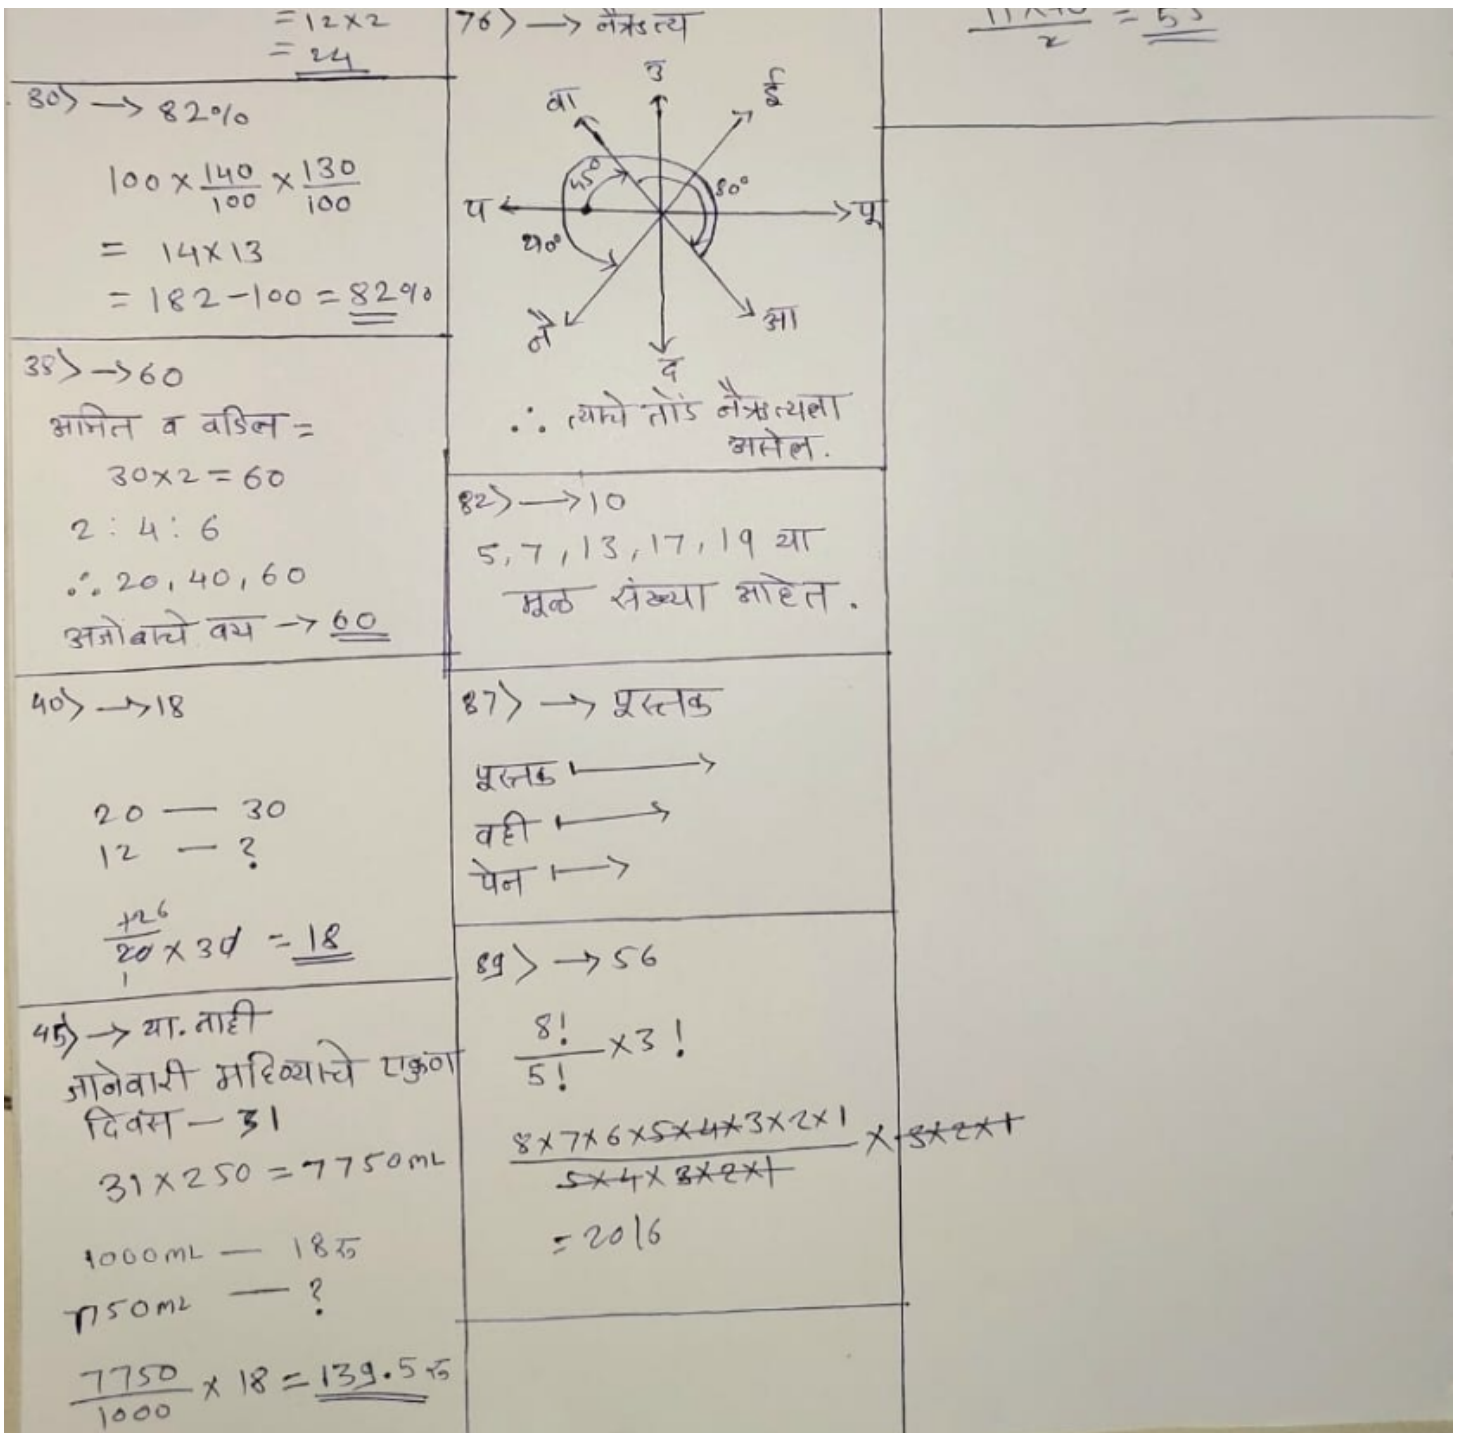 = 12 x 2
= 24
30) → 82%
100 x 140/100 x 130/100
= 14 x 13
= 182 - 100 = 82%
38) → 60
अमित व वडिल =
30 x 2 = 60
2 : 4 : 6
∴ 20, 40, 60
अजोबाचे वय → 60
40) → 18
20 — 30
12 — ?
12 6
20 x 30 = 18
1
45) → या. नाही
जानेवारी महिन्याचे एकुण
दिवस — 31
31 x 250 = 7750 mL
1000 mL — 18 रु
7750 mL — ?
7750/1000 x 18 = 139.5 रु
76) → नैऋत्य
उ
वा
ई
45°
80°
प
पू
90°
नै
आ
द
∴ त्याचे तोंड नैऋत्यला
असेल.
82) → 10
5, 7, 13, 17, 19 या
मूळ संख्या आहेत.
87) → पूस्तक
पूस्तक
वही
पेन
89) → 56
8!/5! x 3!
8x7x6x5x4x3x2x1/5x4x3x2x1 x 3x2x1
= 2016